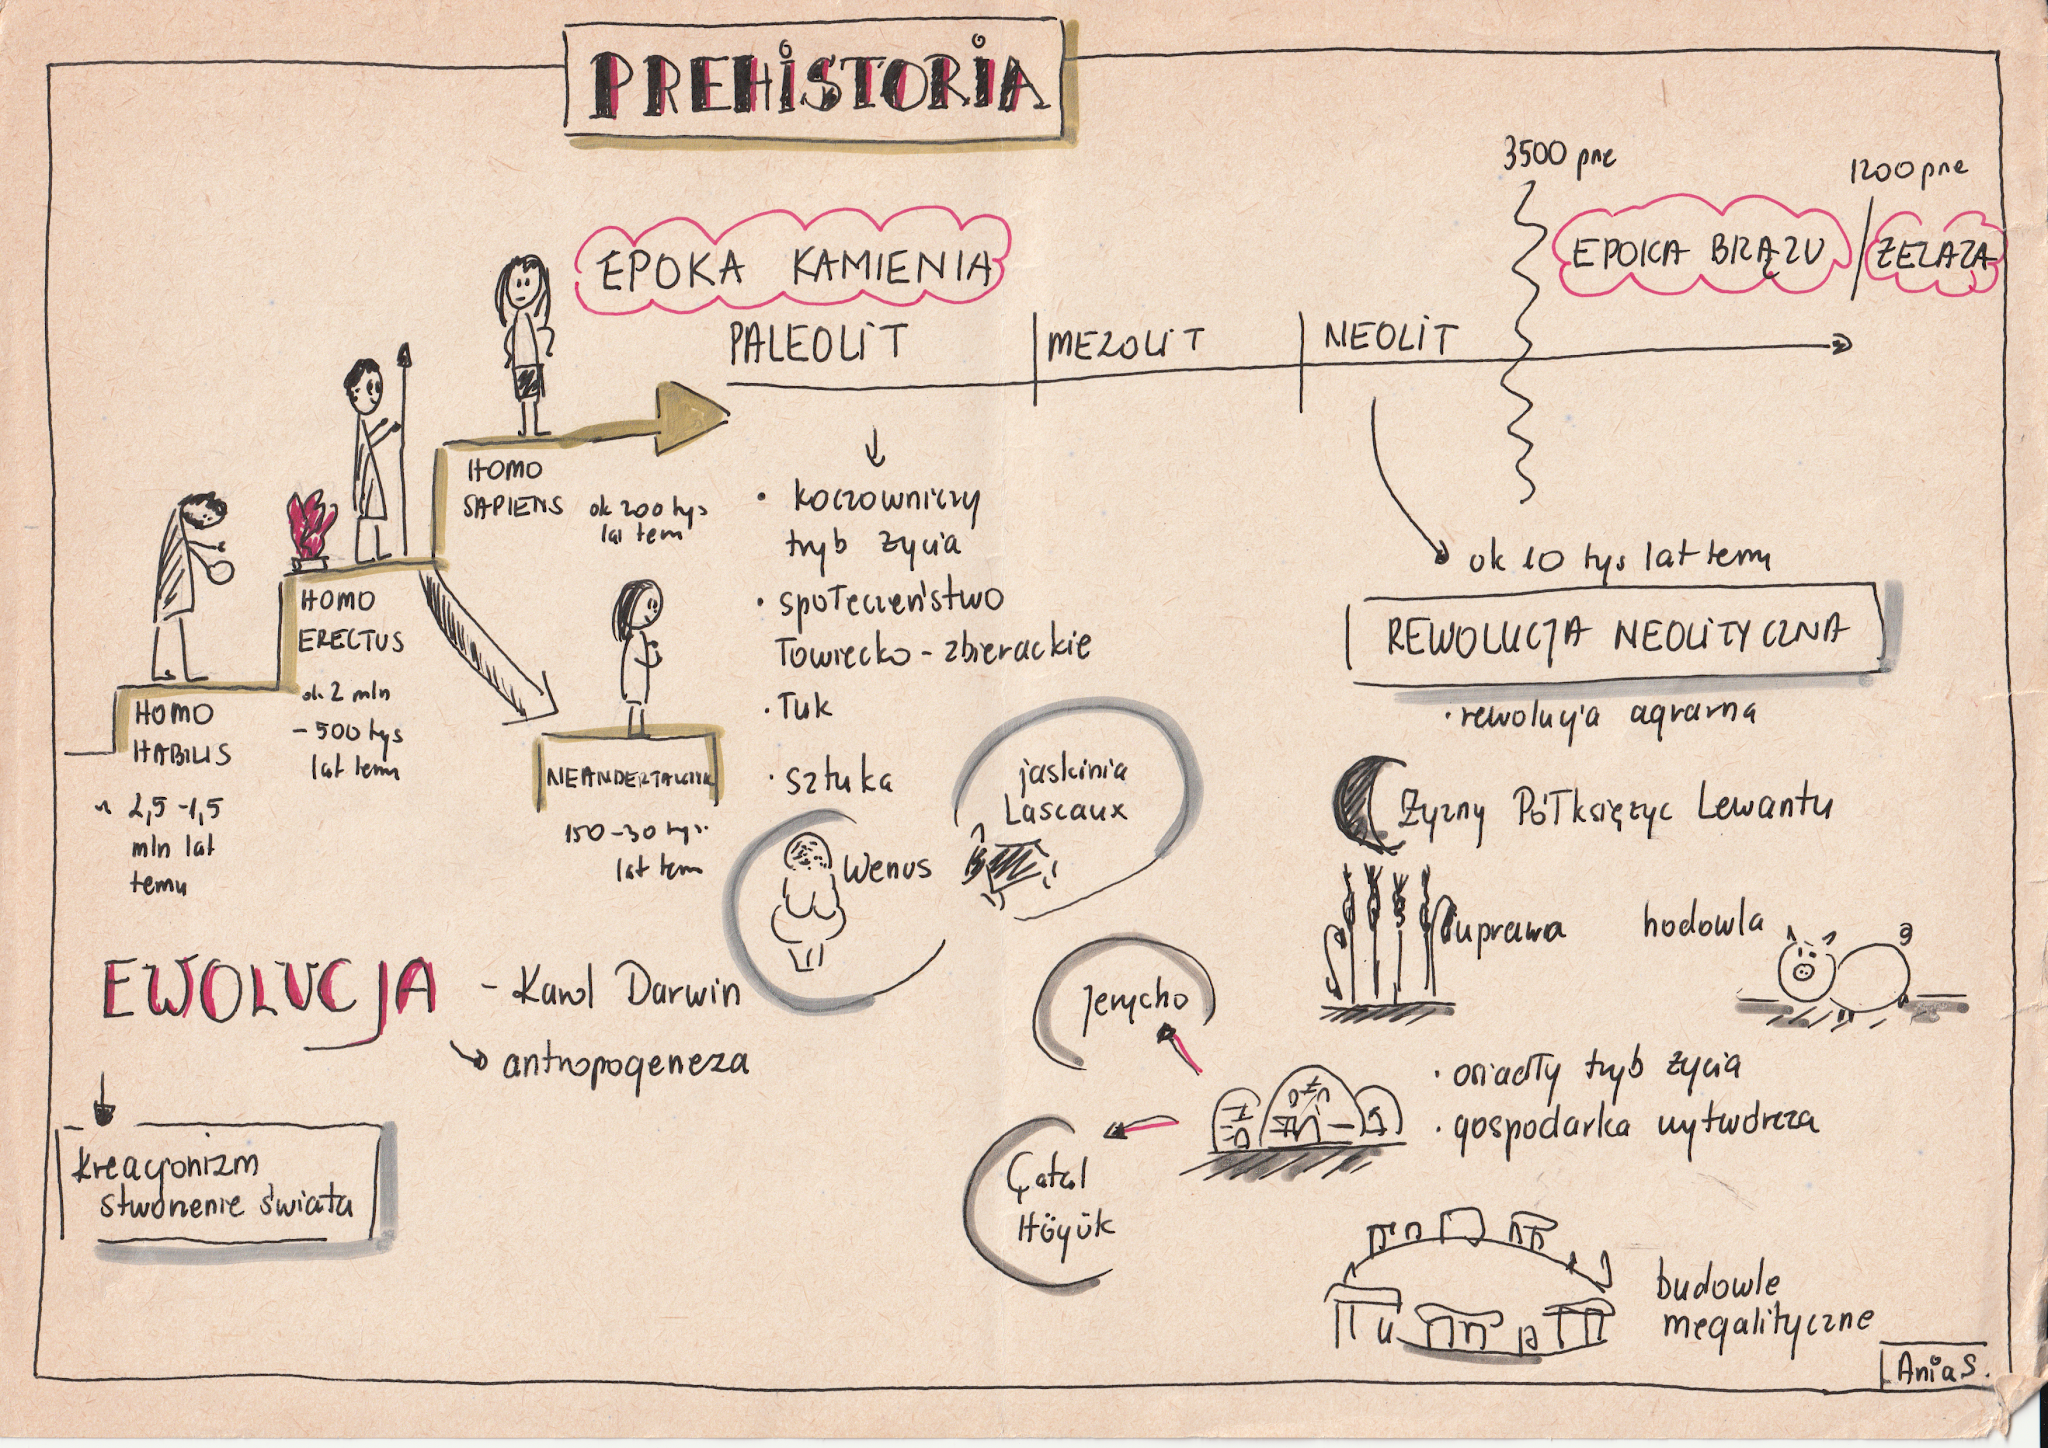 PREHISTORIA
3500 pne
1200 pne
EPOKA KAMIENIA
EPOKA BRĄZU
ŻELAZA
PALEOLIT
MEZOLIT
NEOLIT
HOMO
SAPIENS
ok 200 tys
lat temu
HOMO
ERECTUS
ok 2 mln
- 500 tys
lat temu
HOMO
HABILIS
~ 2,5 - 1,5
mln lat
temu
NEANDERTALCZYK
150 - 30 tys.
lat temu
• koczowniczy
tryb życia
• społeczeństwo
łowiecko - zbierackie
• łuk
• sztuka
Wenus
jaskinia
Lascaux
ok 10 tys lat temu
REWOLUCJA NEOLITYCZNA
• rewolucja agrarna
Żyzny Półksiężyc Lewantu
uprawa
hodowla
• osiadły tryb życia
• gospodarka wytwórcza
Jerycho
Çatal
Höyük
budowle
megalityczne
EWOLUCJA
- Karol Darwin
antropogeneza
kreacjonizm
stworzenie świata
Ania S.